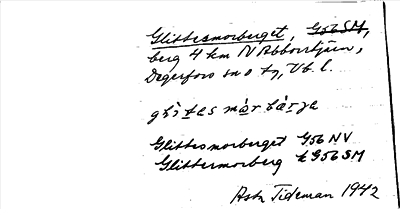 Glittesmorberget, G56SM,
berg 4 km N Abborrtjärn,
Degerfors sn o tg, Vb. l.
Glittesmorberget G56 NV
Glittermorberg k G56 SM
Astr Tideman 1942